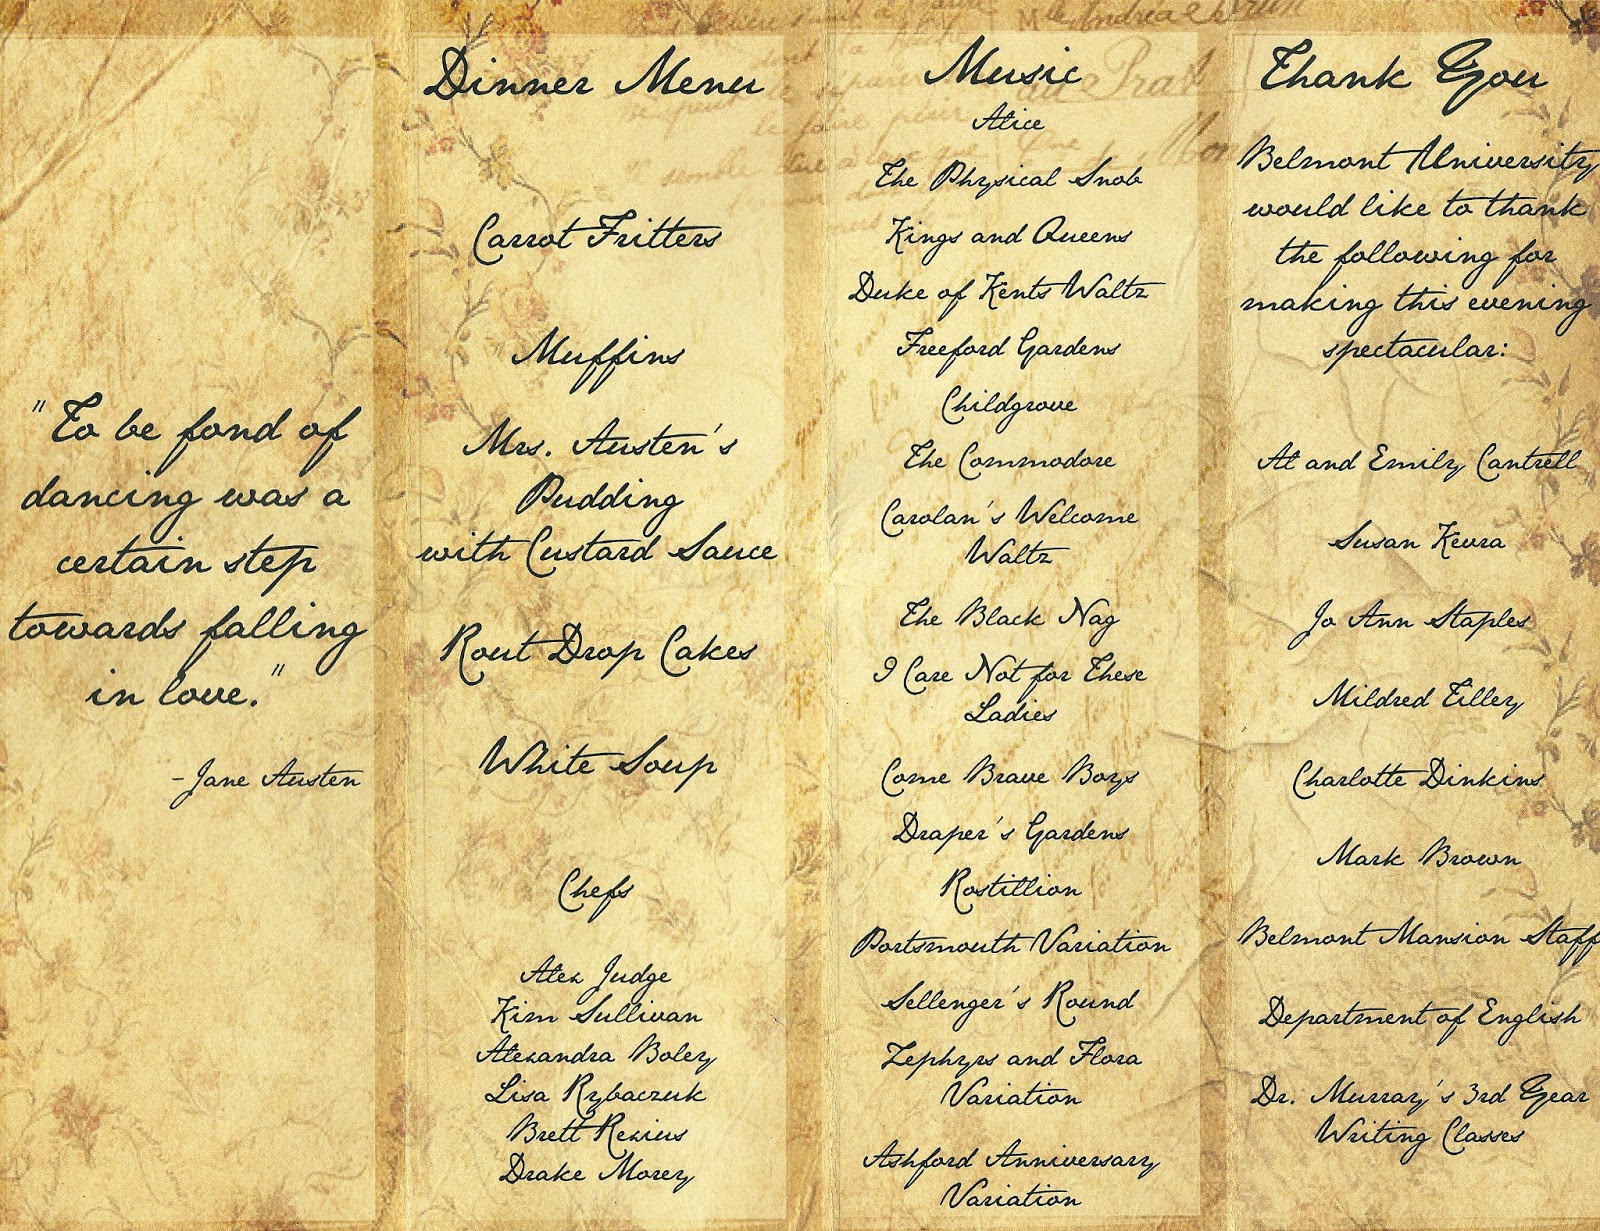 "To be fond of
dancing was a
certain step
towards falling
in love."
-Jane Austen
Dinner Menu
Carrot Fritters
Muffins
Mrs. Austen's
Pudding
with Custard Sauce
Rout Drop Cakes
White Soup
Chefs
Alex Judge
Kim Sullivan
Alexandra Boley
Lisa Rybaczuk
Brett Rexius
Drake Morey
Music
Alice
The Physical Snob
Kings and Queens
Duke of Kents Waltz
Freeford Gardens
Childgrove
The Commodore
Carolan's Welcome
Waltz
The Black Nag
I Care Not for These
Ladies
Come Brave Boys
Draper's Gardens
Rostillion
Portsmouth Variation
Sellenger's Round
Zephyrs and Flora
Variation
Ashford Anniversary
Variation
Thank You
Belmont University
would like to thank
the following for
making this evening
spectacular:
Al and Emily Cantrell
Susan Kevra
Jo Ann Staples
Mildred Tilley
Charlotte Dinkins
Mark Brown
Belmont Mansion Staff
Department of English
Dr. Murray's 3rd Year
Writing Classes